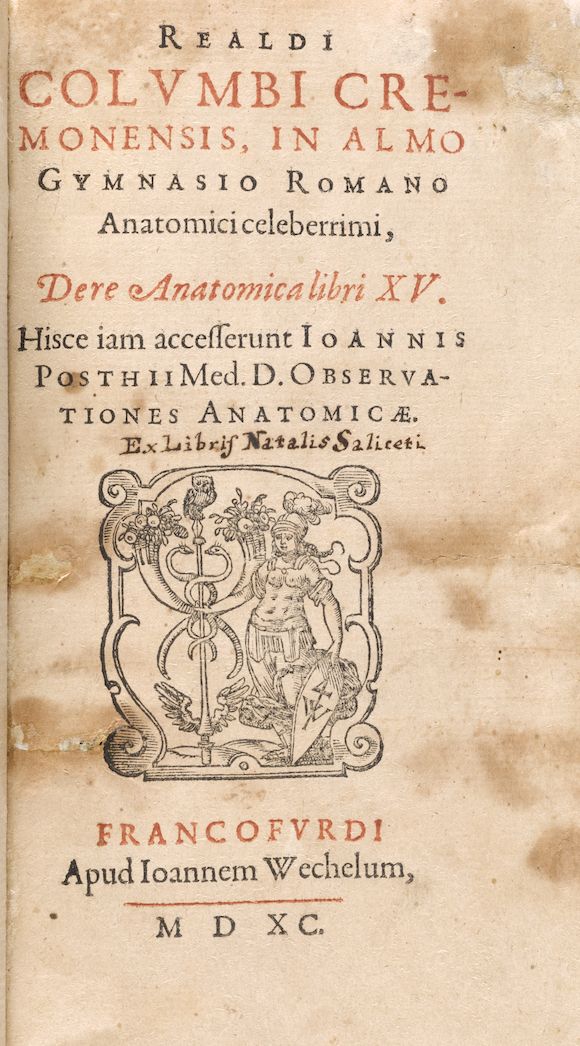 REALDI
COLVMBI CRE-
MONENSIS, IN ALMO
GYMNASIO ROMANO
Anatomici celeberrimi,
De re Anatomica libri XV.
Hisce iam accesserunt IOANNIS
POSTHII Med. D. OBSERVA-
TIONES ANATOMICÆ.
Ex Libris Natalis Saliceti
FRANCOFVRDI
Apud Ioannem Wechelum,
M D XC.